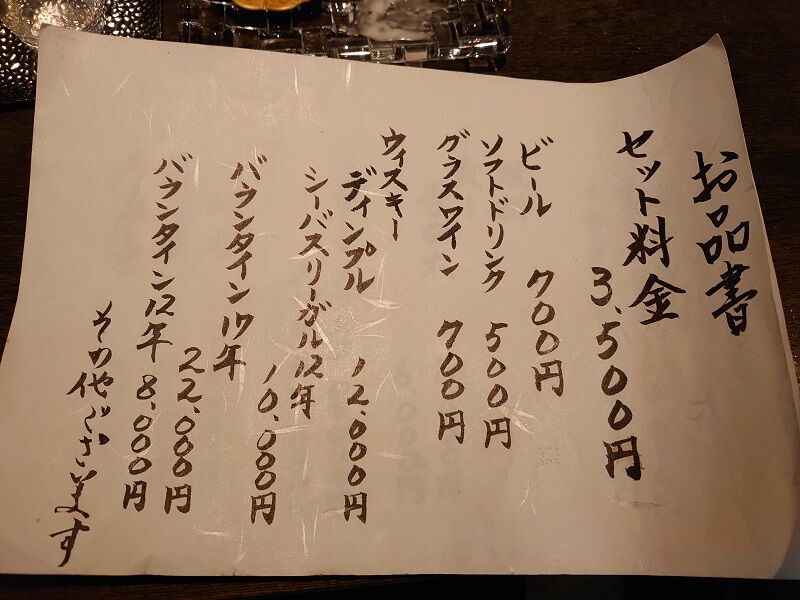 お品書
セット料金
3,500円
ビール 700円
ソフトドリンク 500円
グラスワイン 700円
ウィスキー
ディンプル 12,000円
シーバスリーガル12年
10,000円
バランタイン17年
22,000円
バランタイン12年 8,000円
その他ございます